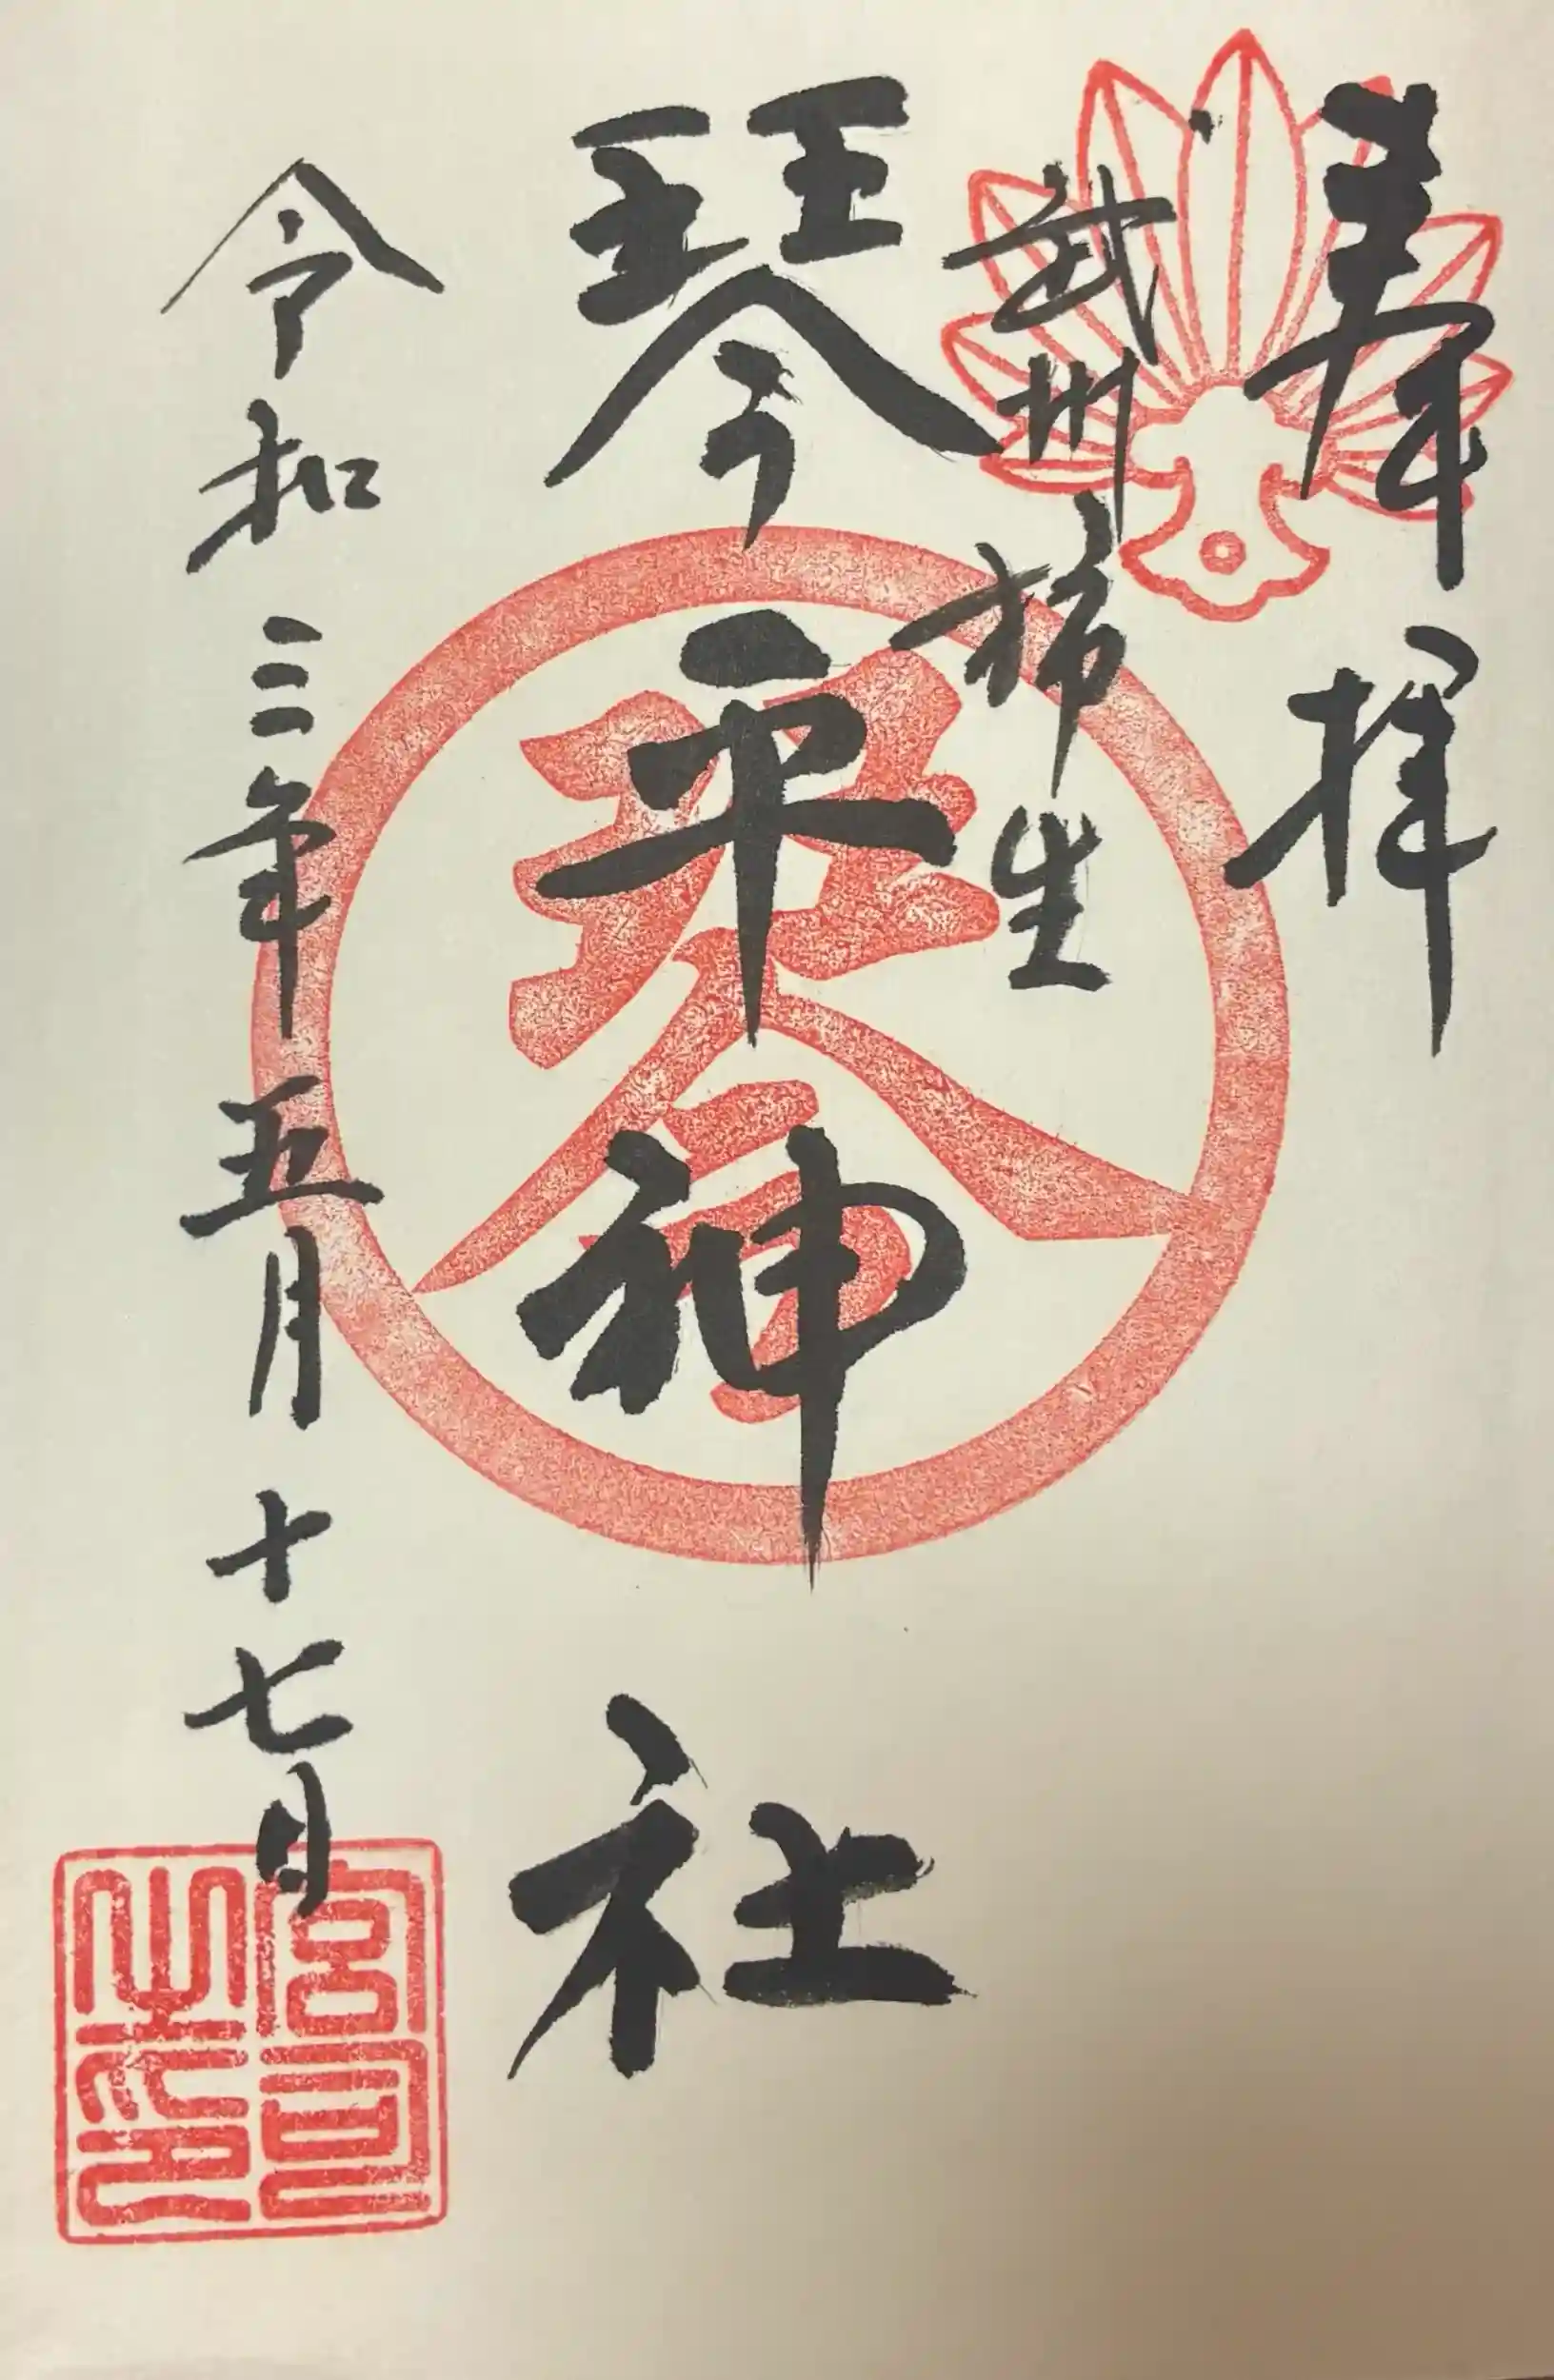 奉拝
武州柿生
琴平神社
令和三年五月十七日
琴
宮司之印